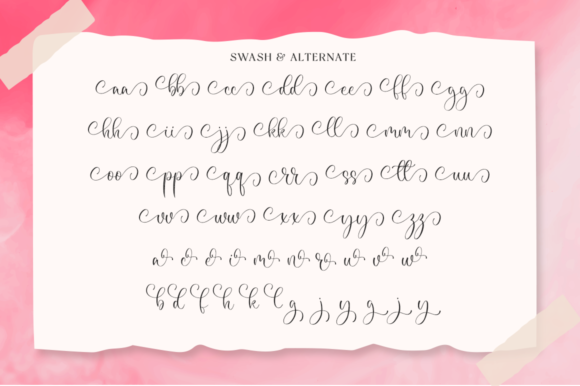 SWASH & ALTERNATE
aa bb cc dd ee ff gg
hh ii jj kk ll mm nn
oo pp qq rr ss tt uu
vv ww xx yy zz
a i m n r u v w
b d f h k l g j y g j y